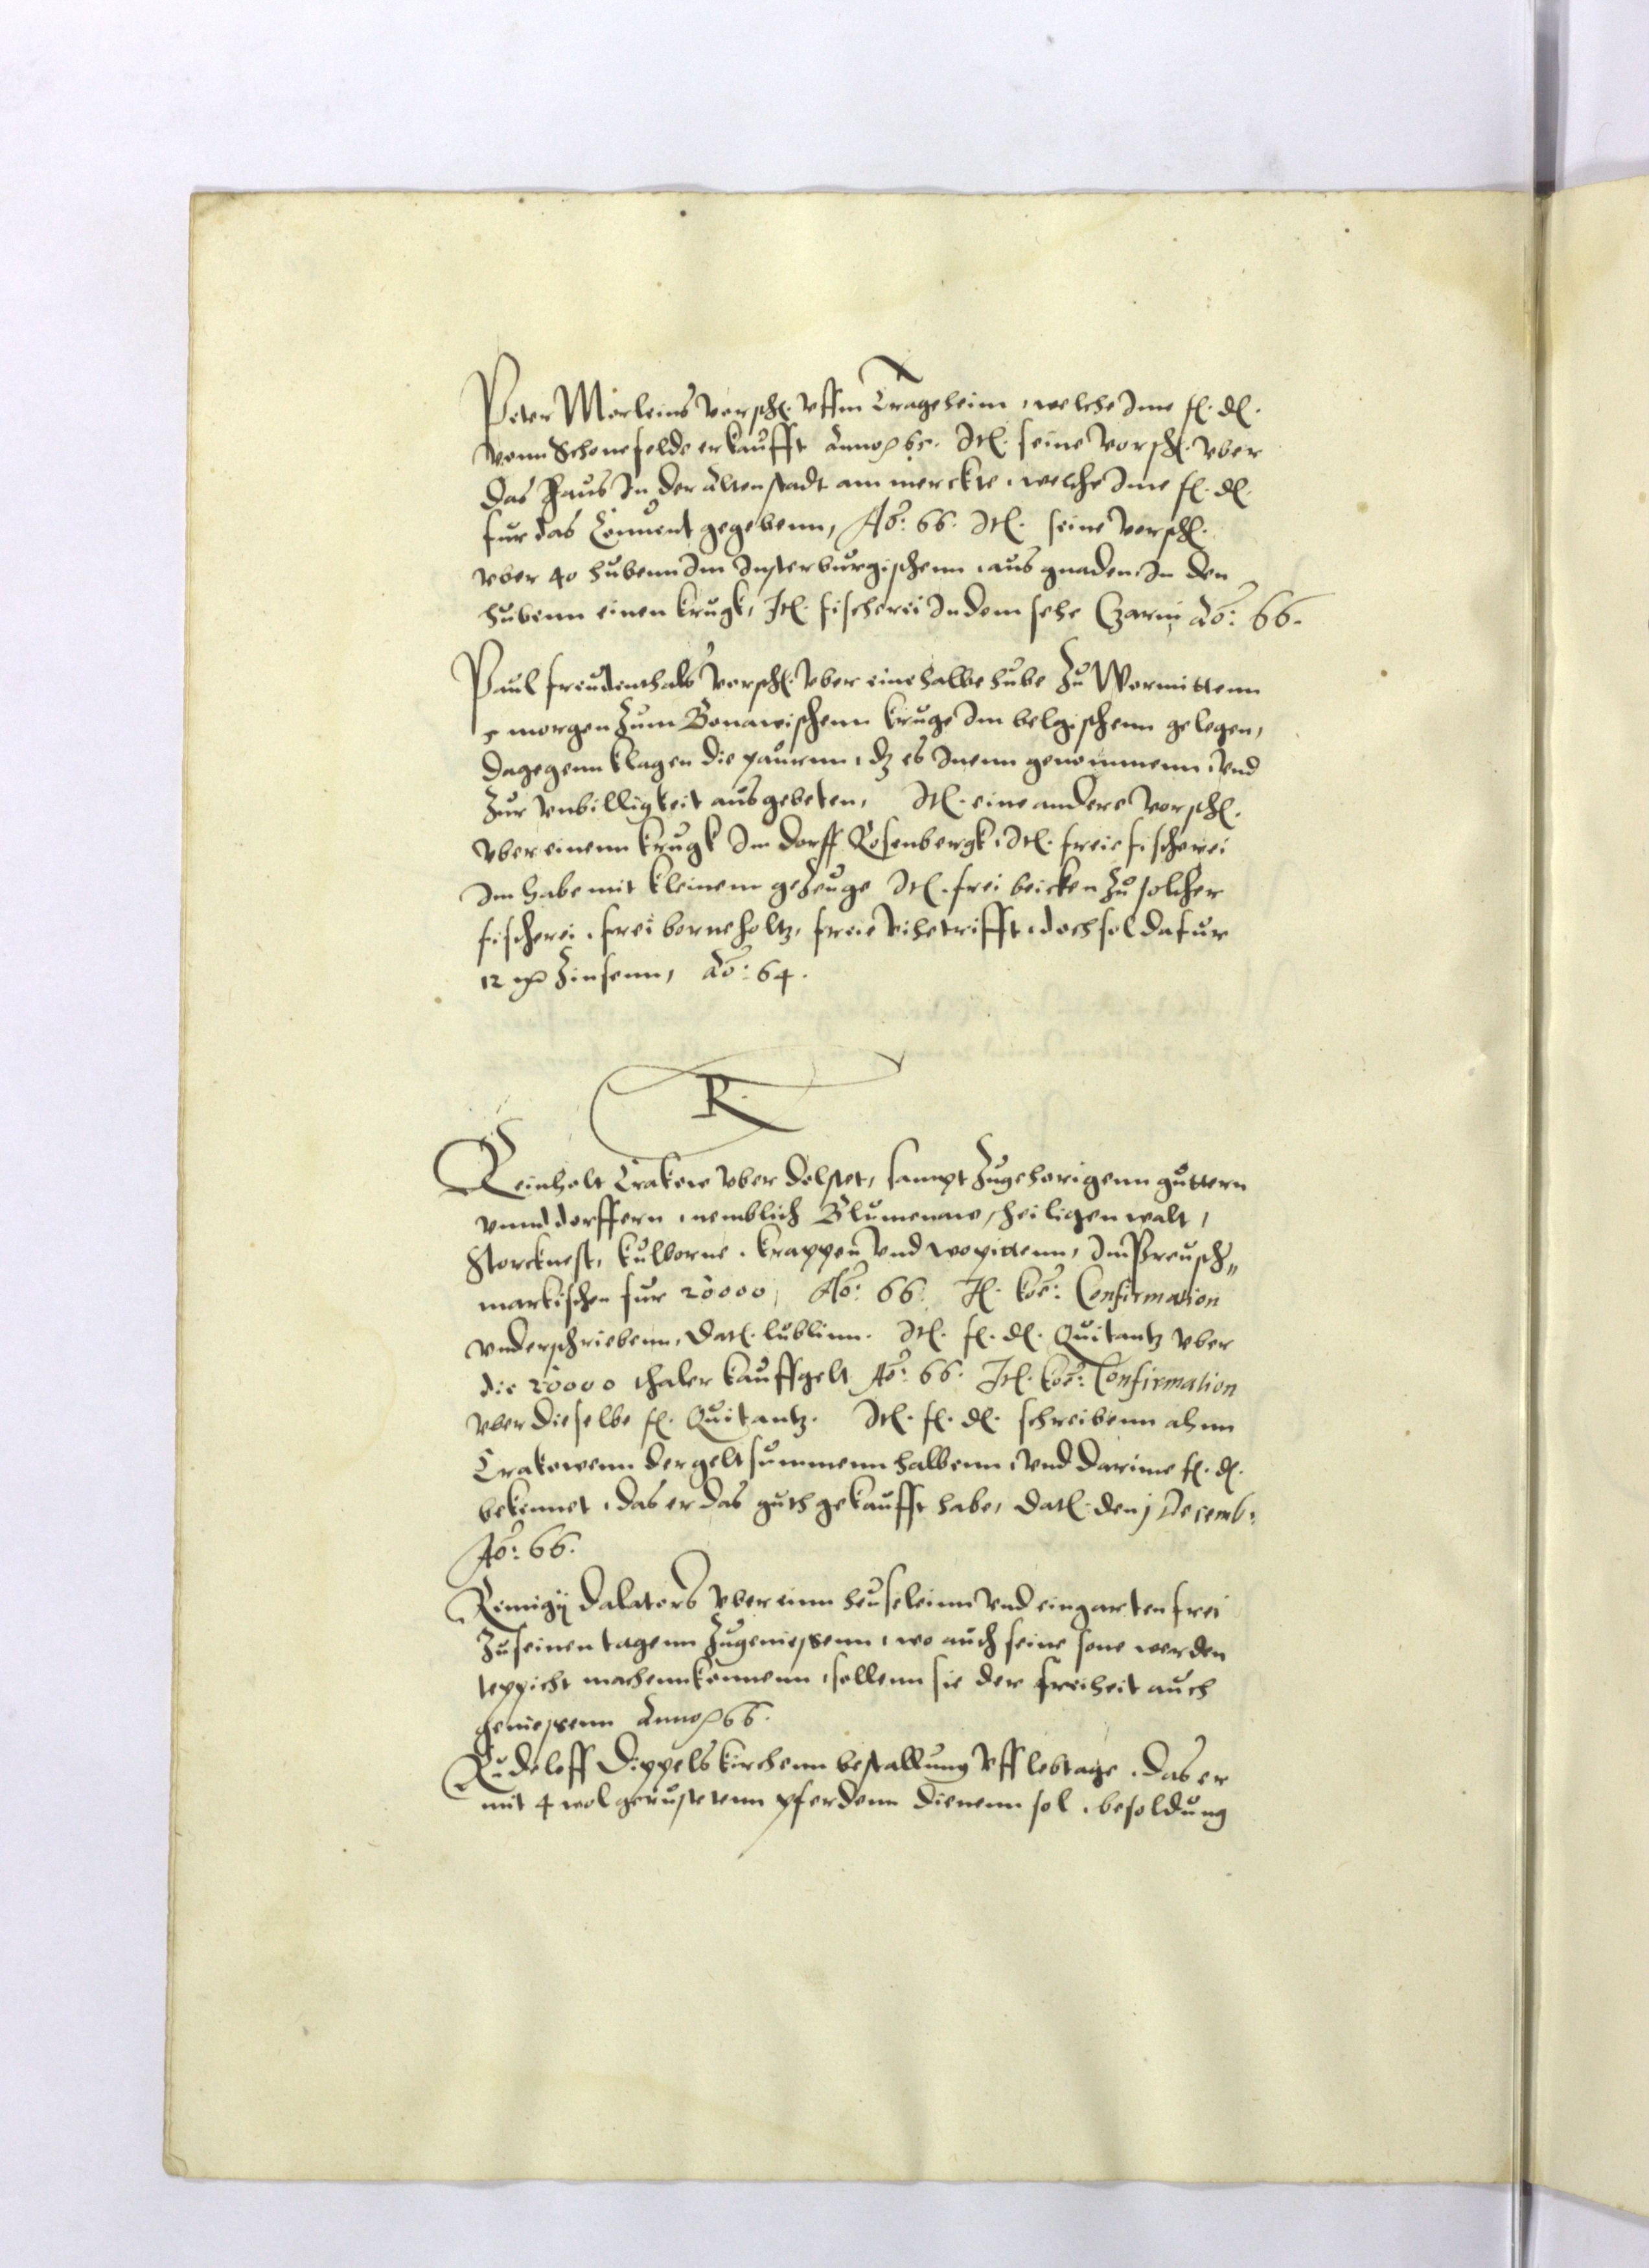 Peter Mörleins vorsch. vffm Trageheim, welche Jme f. d.
vonn Schonefelds erkaufft Anno 65. Jt. seine vorsch. vber
das Haus Jn der Altenstadt am merckte, welche Jme f. d.
fur das Conuent gegebenn, Ao: 66. Jt. seine vorsch.
vber 40 hubenn Jm Jnsterburgischenn aus gnaden, Jn den
hubenn einen krugk, Jt. fischerei Jn dem sehe Czarni Ao: 66.
Paul freudenthals vorsch. vber eine halbe hube Zu Wormittenn
5 morgen Zum Bonawischenn kruge Jm belgischenn gelegen,
dagegenn klagen die paurenn, dz es Jnenn genommenn, vnd
Zur vnbilligkeit ausgebeten, Jt. eine andere vorsch.
vber einenn krugk Jm dorff Rosenbergk, Jt. freie fischerei
Jm habe mit kleinem gezeuge Jt. frei beicken Zu solcher
fischerei, frei borneholtz, freie vihetrifft, doch sol dafur
12 mk Zinsenn, Ao: 64.
R.
Reinholt Crakow vber dolstet, sampt Zugehorigenn guttern
vnnd dorffern, nemblich Blumenaw, heiligen walt,
Storcknest, kulborne, krappen vnd wopittenn, Jm Preusch„
markischen fur 20000, Ao: 66. Jt. koe: Confirmation
vnderschriebenn, dat. lublinn. Jt. f. d. Quitantz vber
die 20000 thaler kauffgelt Ao: 66. Jt. koe: Confirmation
vber dieselbe f. Quitantz. Jt. f. d. schreibenn ahnn
Crakowenn der geltsummenn halbenn, vnd darinne f. d.
bekennet, das er das guth gekaufft habe, dat. den j Decemb:
Ao: 66.
Remigij dalators vber einn heuseleinn vnd ein garten frei
Zu seinen tagenn Zugeniessenn, wo auch seine sone werden
teppicht machenn konnenn, sollenn sie der freiheit auch
geniessenn Anno 66.
Rudeloff Dippelskirchenn bestallung vff lebtage, das er
mit 4 wol gerustetenn pferdenn dienenn sol, besoldung